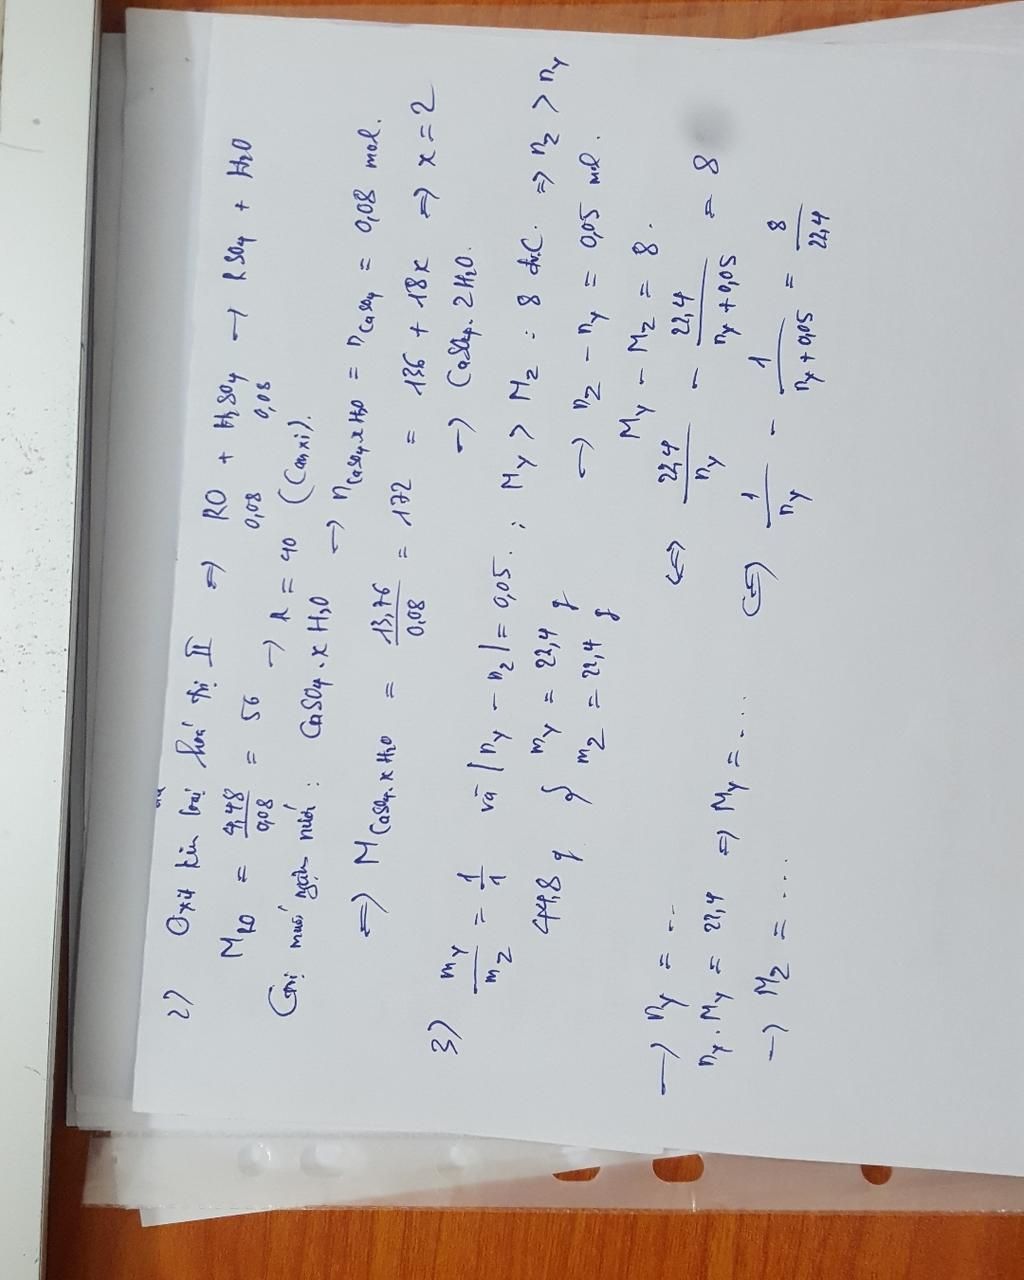 2) Oxit kim loại hoá trị II ⇒ RO + H₂SO₄ → RSO₄ + H₂O
0,08 0,08
M_RO = 4,48/0,08 = 56 → R = 40 (Canxi).
Gọi muối ngậm nước: CaSO₄.xH₂O
→ n_CaSO₄.xH₂O = n_CaSO₄ = 0,08 mol.
⇒ M_CaSO₄.xH₂O = 13,76/0,08 = 172 = 136 + 18x ⇒ x = 2
→ CaSO₄.2H₂O.
3) m_Y/m_Z = 1/1 và |n_Y − n_Z| = 0,05. ; M_Y > M_Z : 8 đv.C. ⇒ n_Z > n_Y
44,8 g { m_Y = 22,4 g
m_Z = 22,4 g
→ n_Z − n_Y = 0,05 mol.
M_Y − M_Z = 8.
⇔ 22,4/n_Y − 22,4/(n_Y + 0,05) = 8
⇔ 1/n_Y − 1/(n_Y + 0,05) = 8/22,4
→ n_Y = ...
n_Y . M_Y = 22,4 ⇒ M_Y = ....
→ M_Z = ....